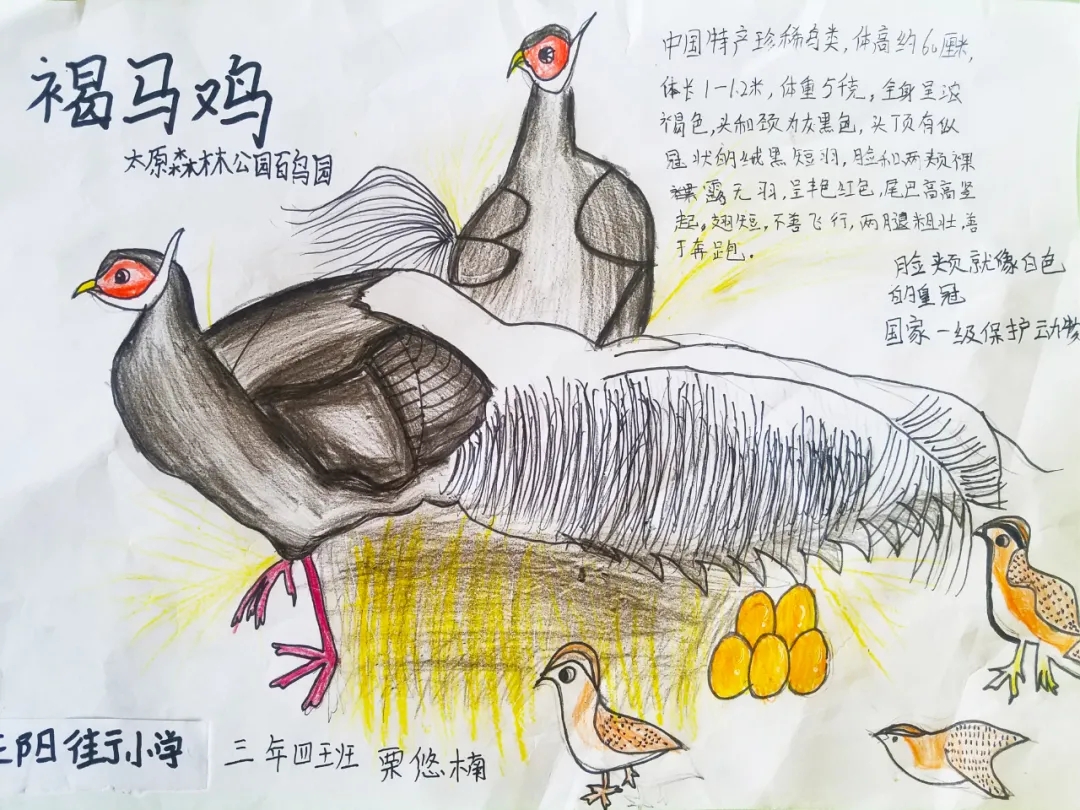 褐马鸡
太原森林公园百鸟园
中国特产珍稀鸟类,体高约60厘米,
体长1-1.2米,体重5千克,全身呈浓
褐色,头和颈为灰黑色,头顶有似
冠状的绒黑短羽,脸和两颊裸
露无羽,呈艳红色,尾巴高高竖
起。翅短,不善飞行,两腿粗壮,善
于奔跑.
脸颊就像白色
的皇冠
国家一级保护动物
阳街小学
三年四班 栗悠楠